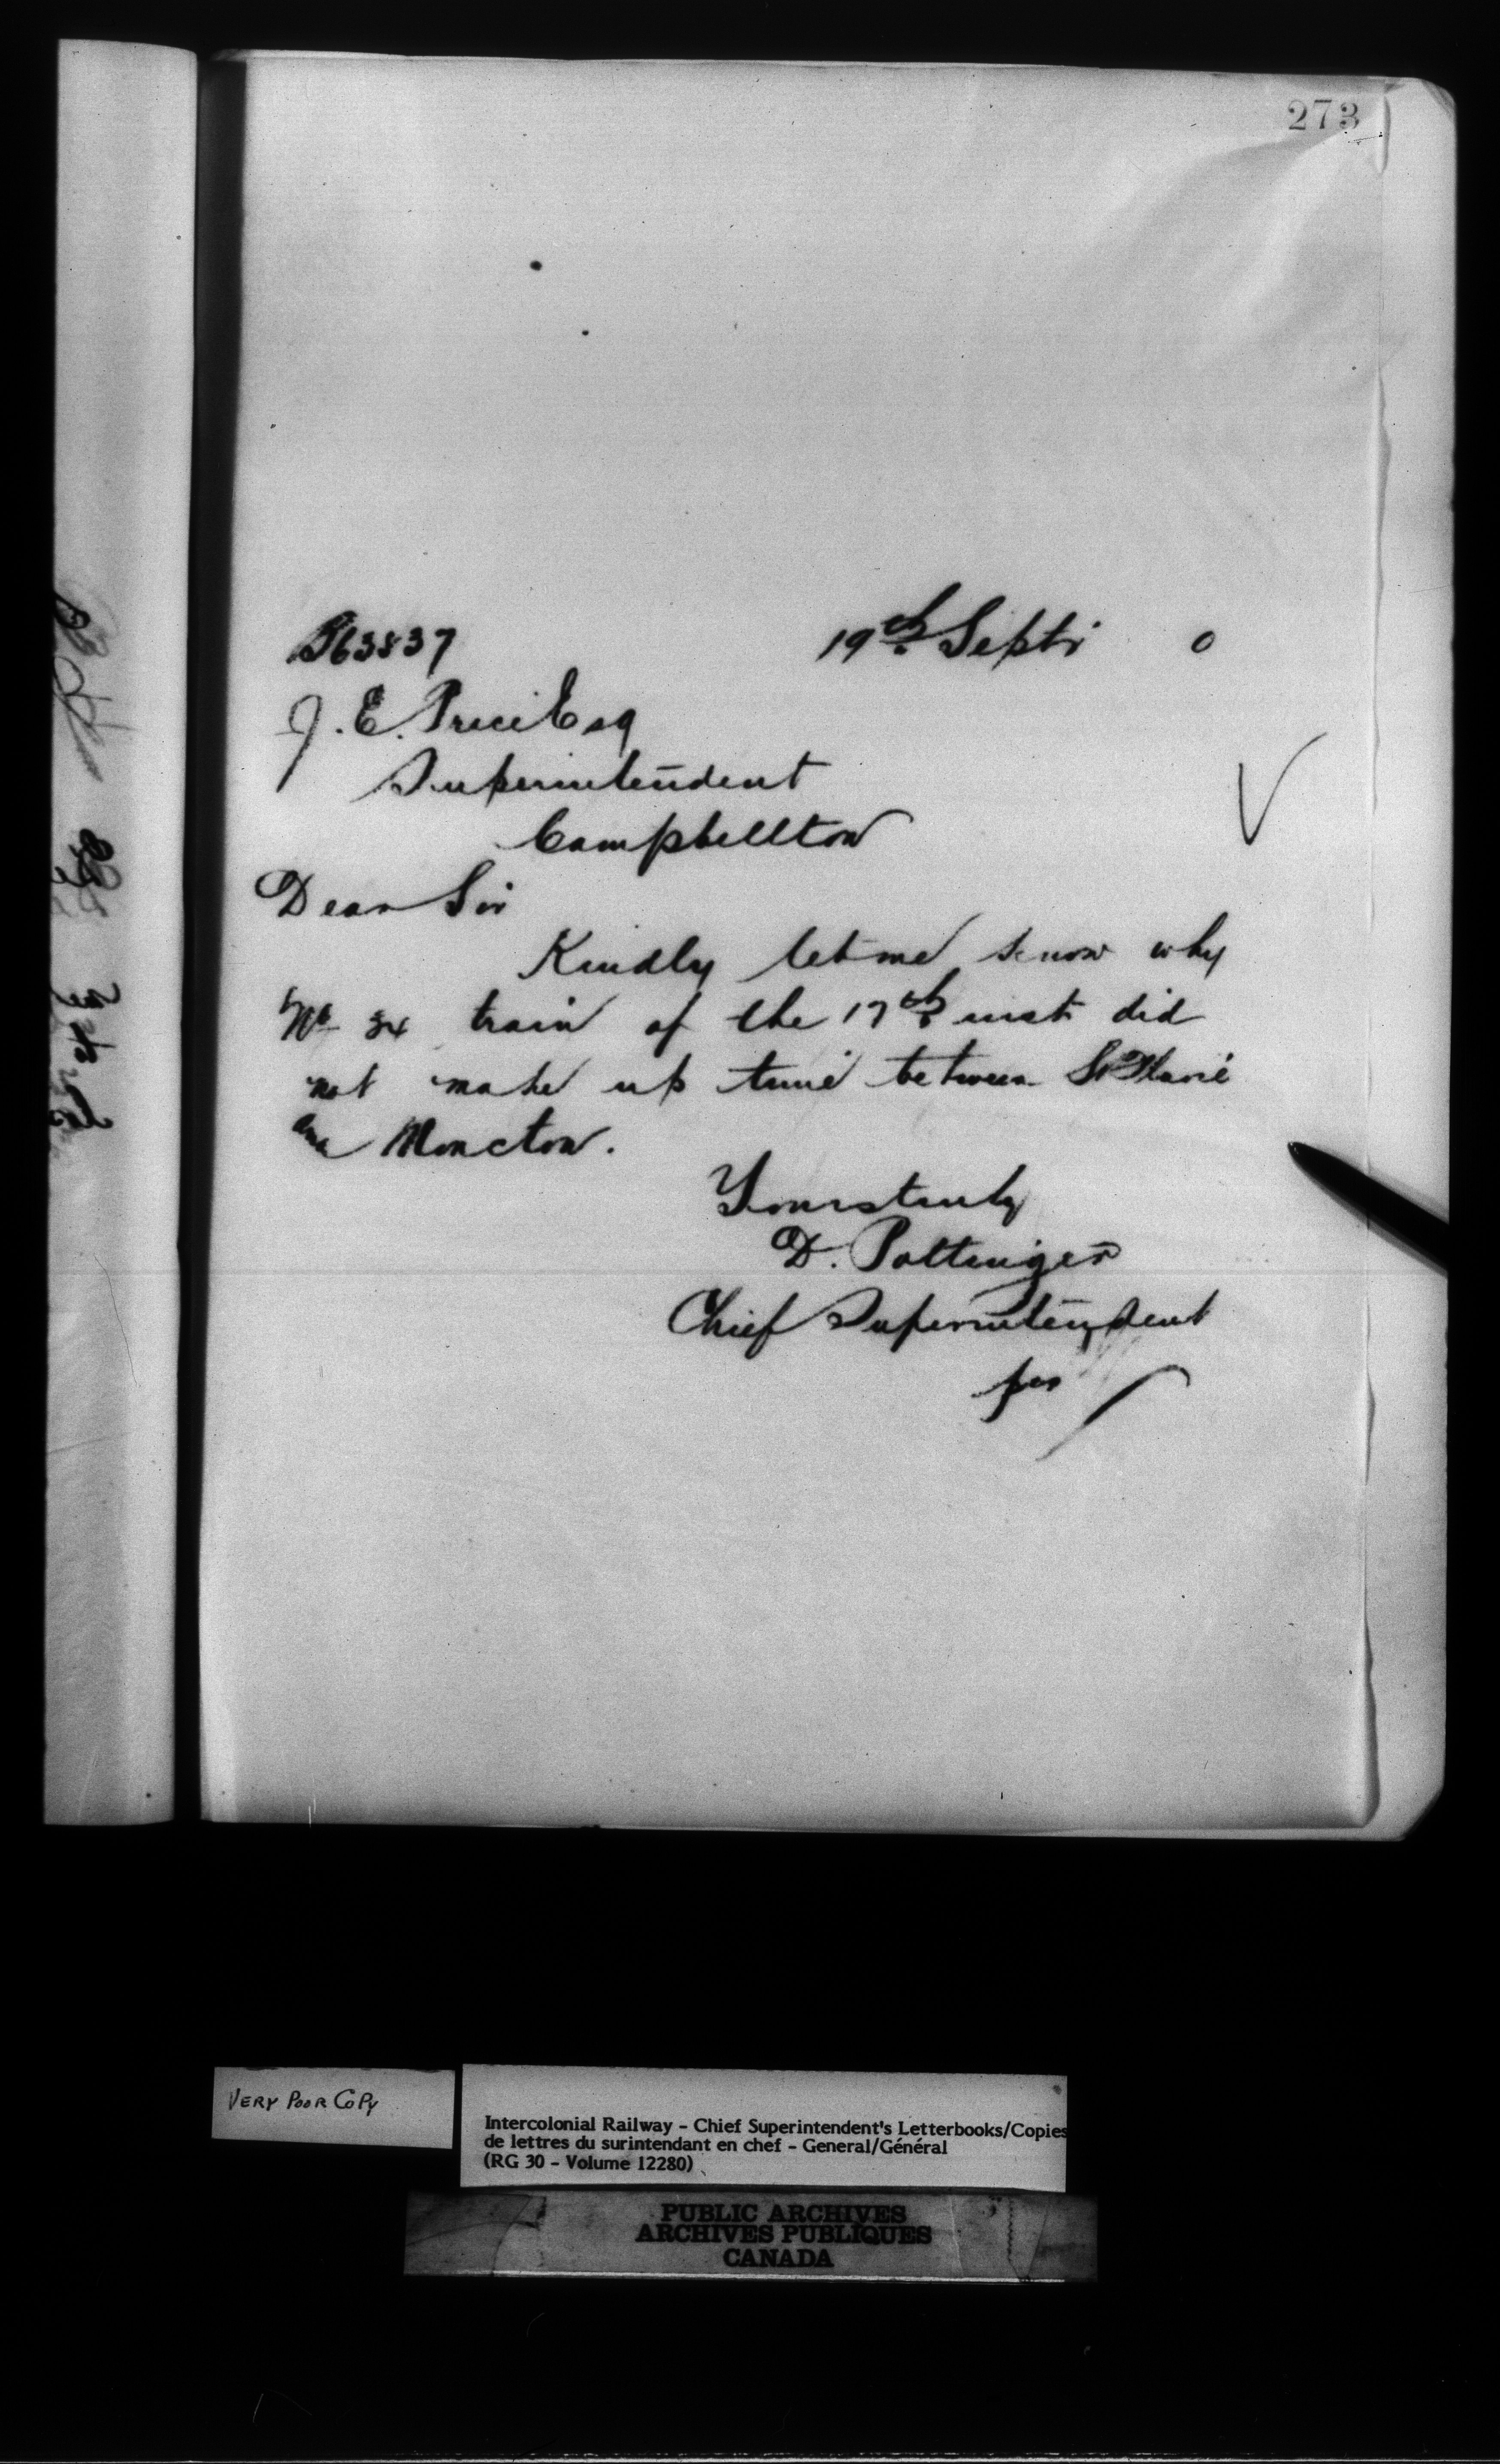 273
19th Sept 0
J. E. Price Esq
Superintendent
Campbellton
Dear Sir
Kindly let me know why
No 34 train of the 17th inst did
not make up time between St Flavie
and Moncton.
Yours truly
D. Pottinger
Chief Superintendent
per
VERY POOR COPY
Intercolonial Railway - Chief Superintendent's Letterbooks/Copies
de lettres du surintendant en chef - General/Général
(RG 30 - Volume 12280)
PUBLIC ARCHIVES
ARCHIVES PUBLIQUES
CANADA